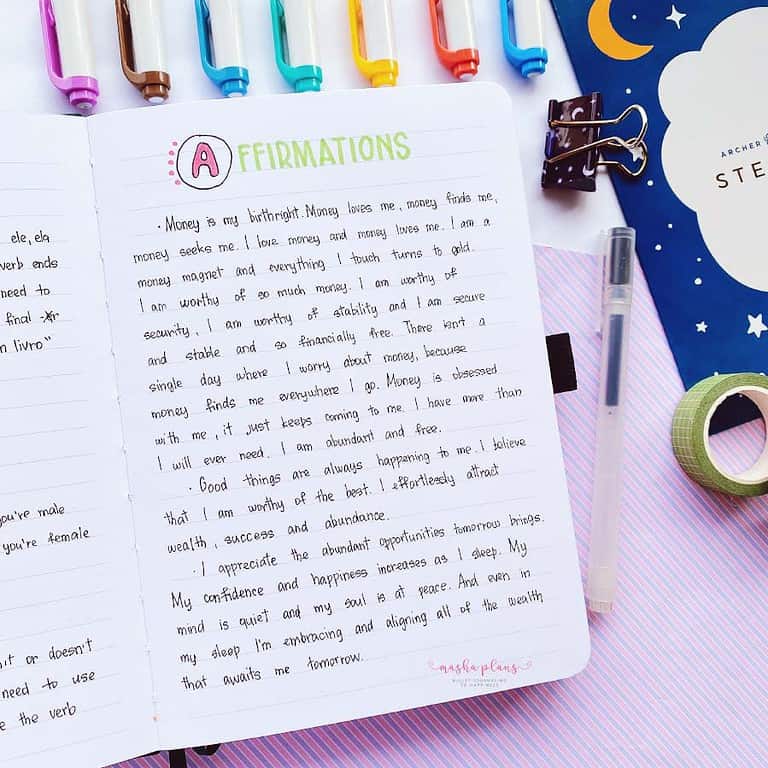 ele, ela
verb ends
need to
final -r
n livro"
you're male
you're female
or doesn't
need to use
e the verb
AFFIRMATIONS
· Money is my birthright. Money loves me, money finds me,
money seeks me. I love money and money loves me. I am a
money magnet and everything I touch turns to gold.
I am worthy of so much money. I am worthy of
security, I am worthy of stability and I am secure
and stable and so financially free. There isn't a
single day where I worry about money, because
money finds me everywhere I go. Money is obsessed
with me, it just keeps coming to me. I have more than
I will ever need. I am abundant and free.
· Good things are always happening to me. I believe
that I am worthy of the best. I effortlessly attract
wealth, success and abundance.
· I appreciate the abundant opportunities tomorrow brings.
My confidence and happiness increases as I sleep. My
mind is quiet and my soul is at peace. And even in
my sleep I'm embracing and aligning all of the wealth
that awaits me tomorrow.
masha plans
BULLET JOURNALING
TO HAPPINESS
ARCHER
STE